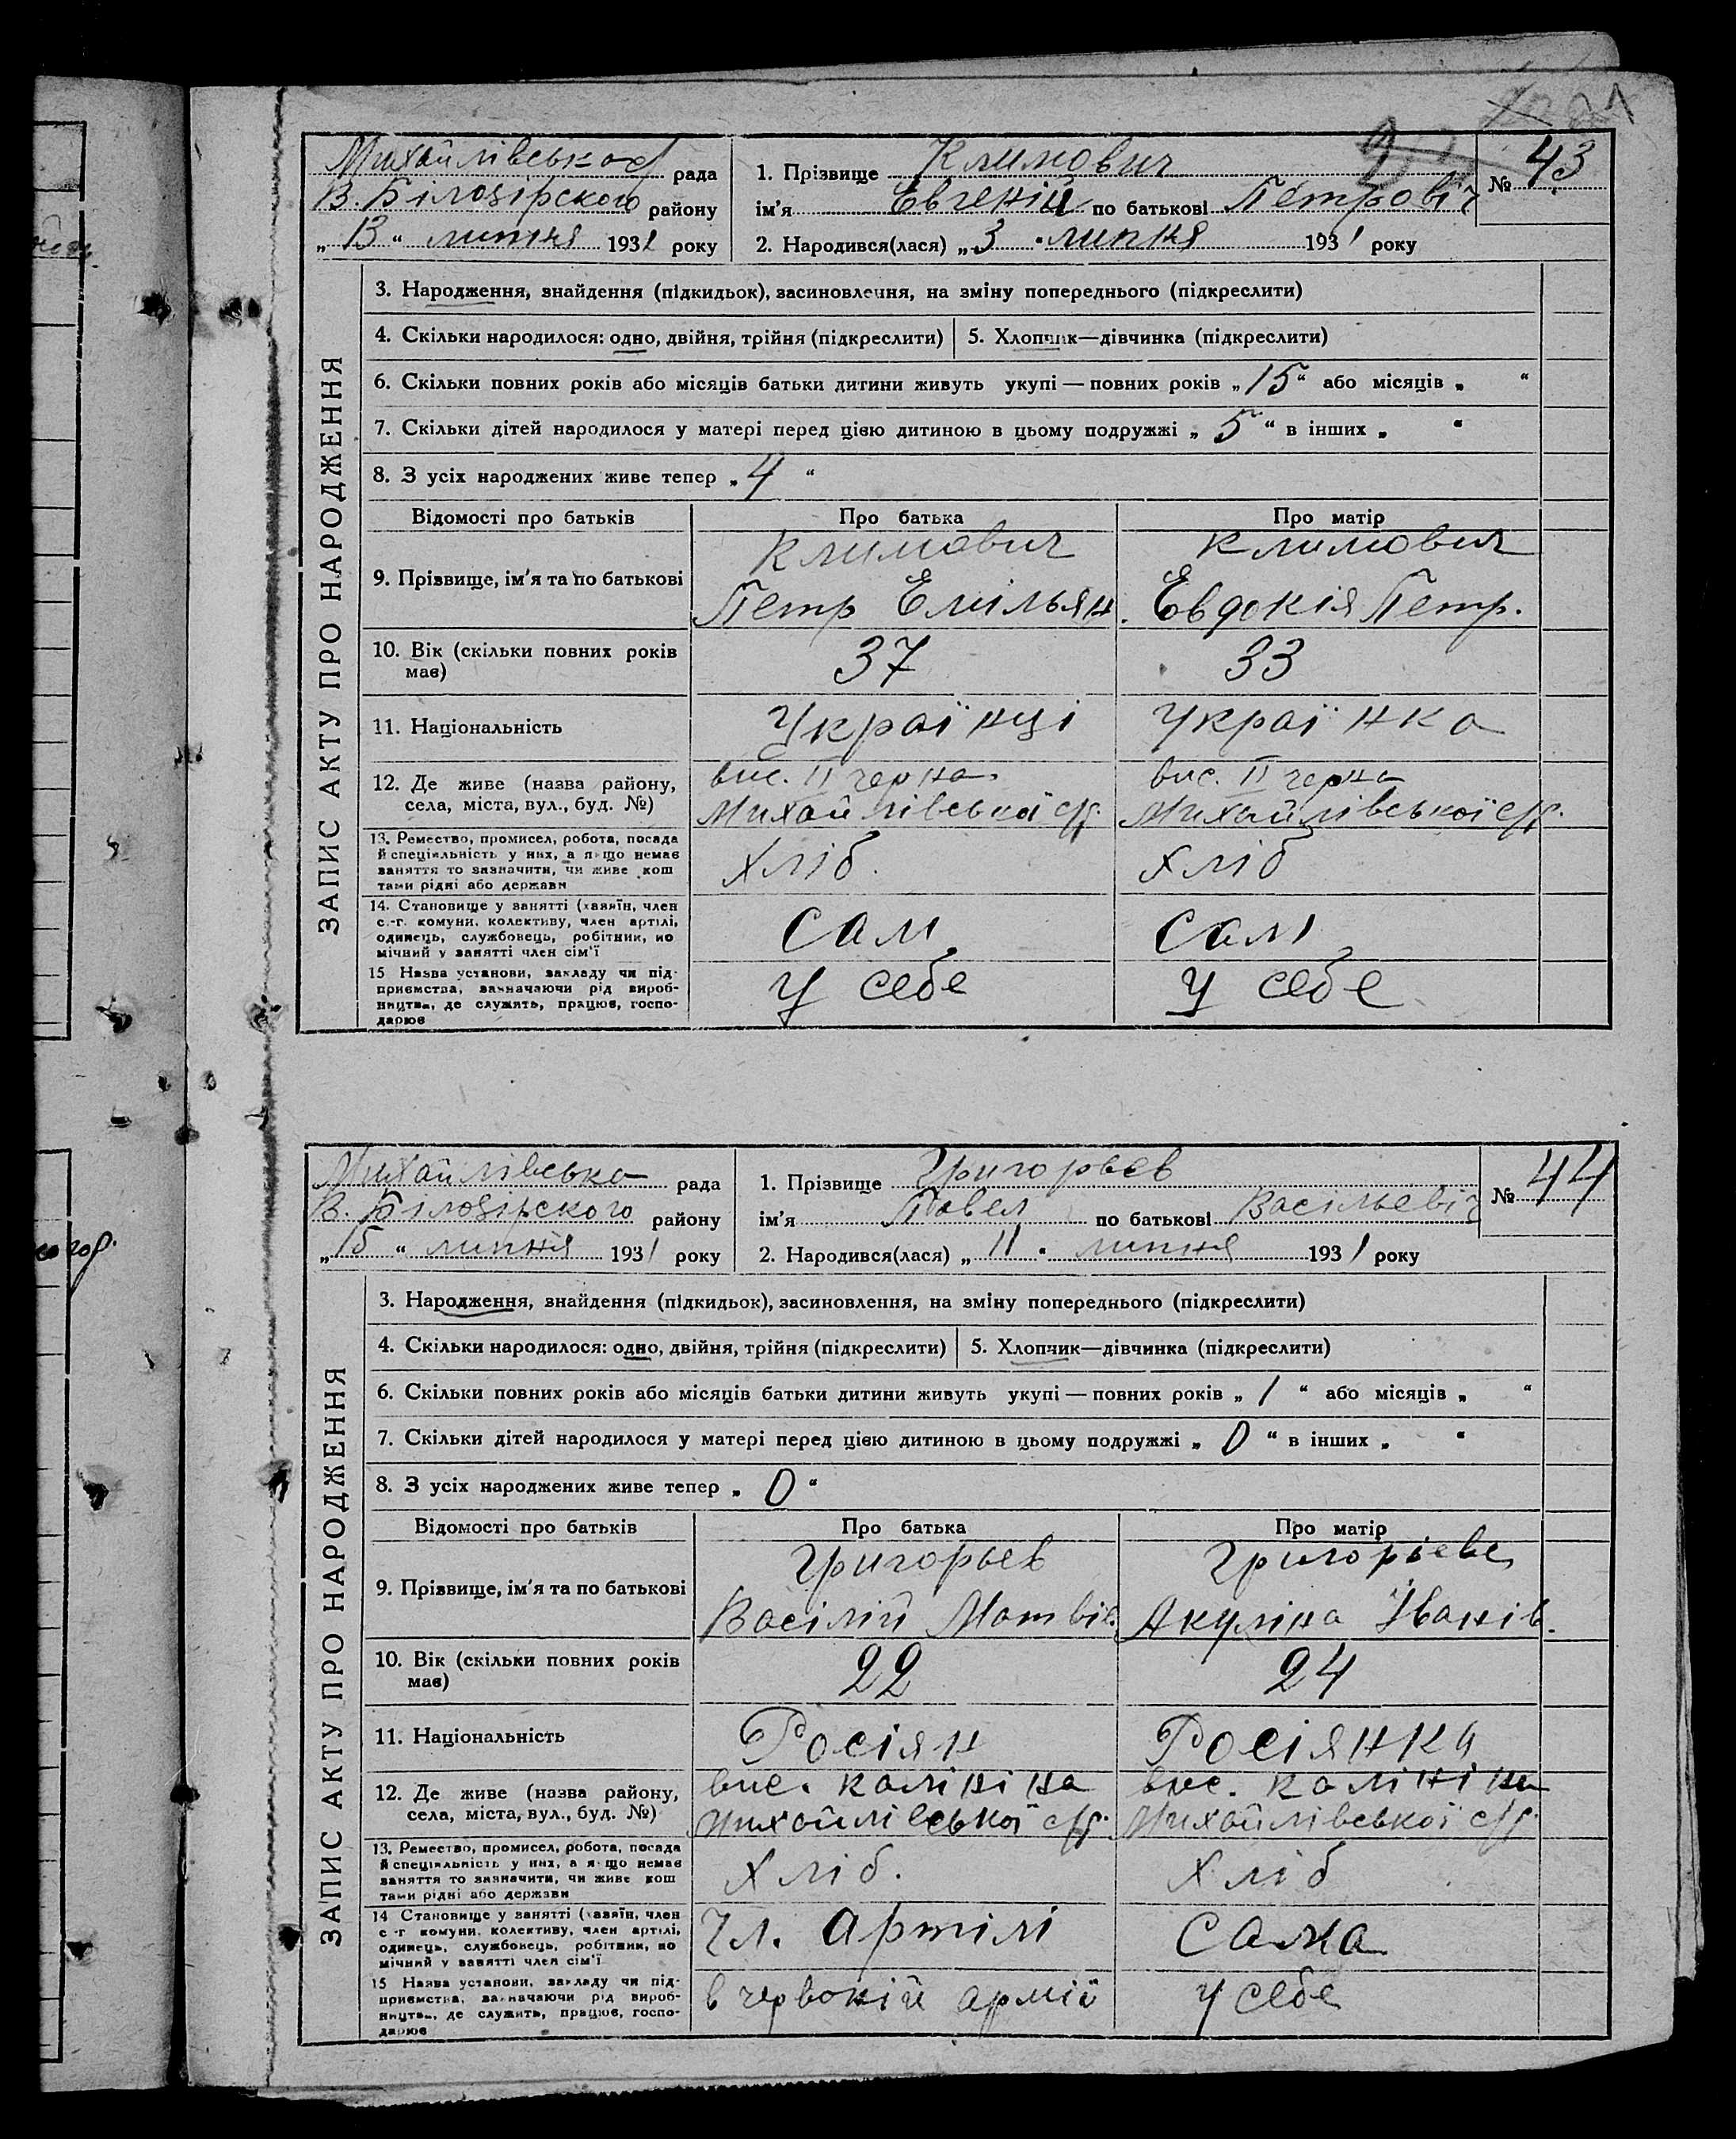 Михайлівська рада
В. Білозірского району
„ 13 “ липня 1931 року
1. Прізвище Климович
ім’я Евгений по батькові Петровіч
2. Народився(лася) „ 3 “ липня 1931 року
№ 43
ЗАПИС АКТУ ПРО НАРОДЖЕННЯ
3. Народження, знайдення (підкидьок), засиновлення, на зміну попереднього (підкреслити)
4. Скільки народилося: одно, двійня, трійня (підкреслити) 5. Хлопчик—дівчинка (підкреслити)
6. Скільки повних років або місяців батьки дитини живуть укупі — повних років „ 15 “ або місяців „ “
7. Скільки дітей народилося у матері перед цією дитиною в цьому подружжі „ 5 “ в інших „ “
8. З усіх народжених живе тепер „ 4 “
Відомості про батьків Про батька Про матір
9. Прізвище, ім’я та по батькові
Климович
Петр Емільян.
Климович
Евдокія Петр.
10. Вік (скільки повних років
має)
37 33
11. Національність Українці Українка
12. Де живе (назва району,
села, міста, вул., буд. №)
вис. II черна
Михайлівської с/р.
вис. II черна
Михайлівської с/р.
13. Ремество, промисел, робота, посада
й спеціяльність у них, а якщо немає
заняття то зазначити, чи живе кош
тами рідні або держави
Хліб. Хліб
14. Становище у занятті (хазяїн, член
с.-г. комуни, колективу, член артілі,
одинець, службовець, робітник, по
мічний у занятті член сім’ї
Сам Сам
15 Назва установи, закладу чи під-
приємства, зазначаючи рід вироб-
ництва, де служить, працює, госпо-
дарює
у себе у себе
Михайлівська рада
В. Білозірского району
„ 15 “ липня 1931 року
1. Прізвище Григорьев
ім’я Павел по батькові Васільевіч
2. Народився(лася) „ 11 “ липня 1931 року
№ 44
ЗАПИС АКТУ ПРО НАРОДЖЕННЯ
3. Народження, знайдення (підкидьок), засиновлення, на зміну попереднього (підкреслити)
4. Скільки народилося: одно, двійня, трійня (підкреслити) 5. Хлопчик—дівчинка (підкреслити)
6. Скільки повних років або місяців батьки дитини живуть укупі — повних років „ 1 “ або місяців „ “
7. Скільки дітей народилося у матері перед цією дитиною в цьому подружжі „ 0 “ в інших „ “
8. З усіх народжених живе тепер „ 0 “
Відомості про батьків Про батька Про матір
9. Прізвище, ім’я та по батькові
Григорьев
Васілій Матвів.
Григорієва
Акуліна Іванів.
10. Вік (скільки повних років
має)
22 24
11. Національність Росіян Росіянка
12. Де живе (назва району,
села, міста, вул., буд. №)
вис. калініна
Михайлівської с/р.
вис. калініна
Михайлівської с/р.
13. Ремество, промисел, робота, посада
й спеціяльність у них, а якщо немає
заняття то зазначити, чи живе кош
тами рідні або держави
Хліб. Хліб
14 Становище у занятті (хазяїн, член
с-г комуни, колективу, член артілі,
одинець, службовець, робітник, по
мічний у занятті член сім’ї
Чл. Артілі Сама
15 Назва установи, закладу чи під-
приємства, зазначаючи рід вироб-
ництва, де служить, працює, госпо-
дарює
в червокій армії у себе